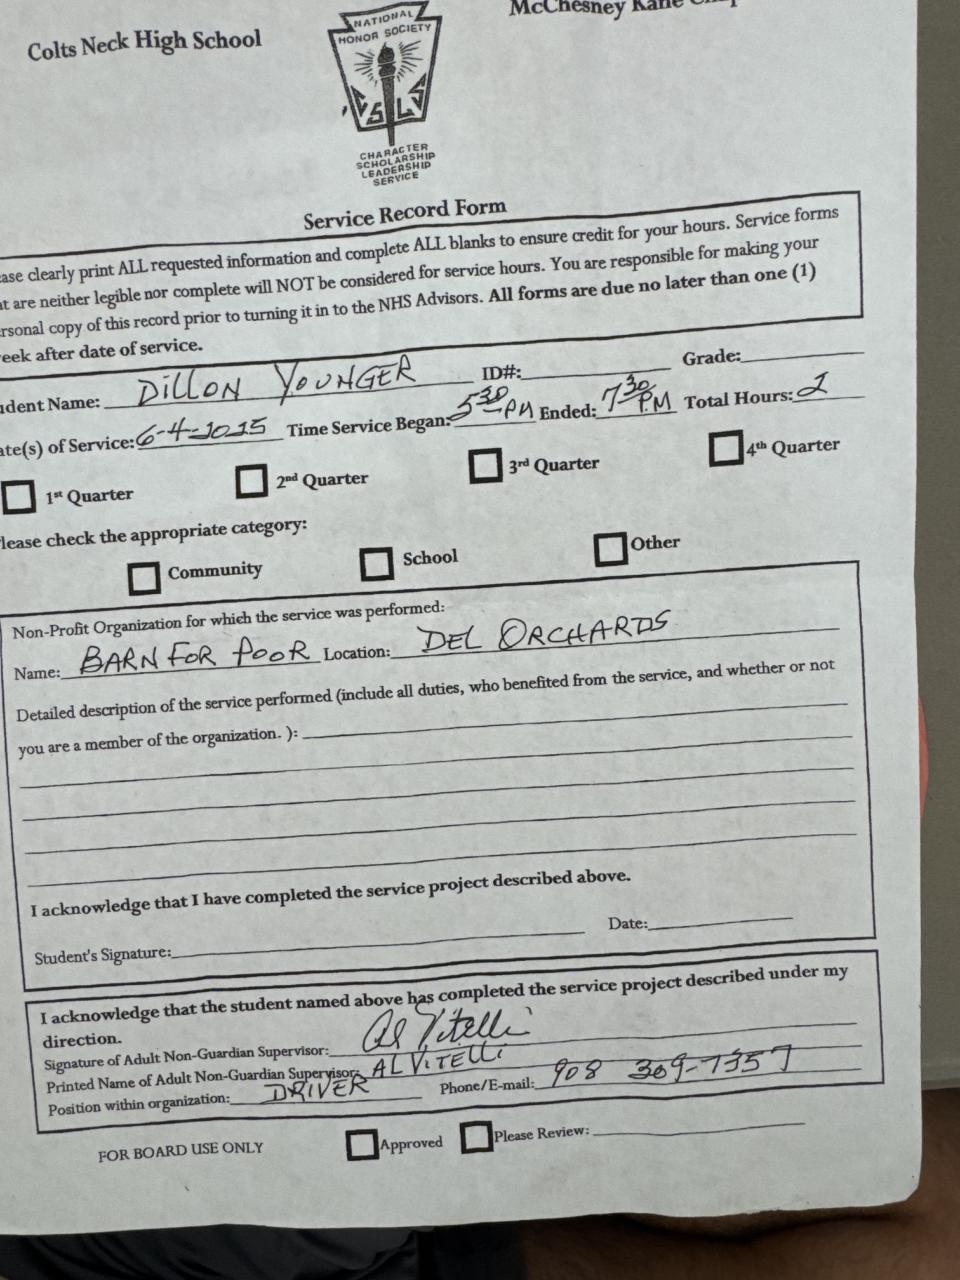 McChesney Kane
Colts Neck High School
NATIONAL
HONOR SOCIETY
CSLS
CHARACTER
SCHOLARSHIP
LEADERSHIP
SERVICE
Service Record Form
ase clearly print ALL requested information and complete ALL blanks to ensure credit for your hours. Service forms
at are neither legible nor complete will NOT be considered for service hours. You are responsible for making your
rsonal copy of this record prior to turning it in to the NHS Advisors. All forms are due no later than one (1)
eek after date of service.
udent Name: DILLON YOUNGER ID#: Grade:
ate(s) of Service: 6-4-2025 Time Service Began: 5:30 PM Ended: 7:30 P.M Total Hours: 2
1st Quarter 2nd Quarter 3rd Quarter 4th Quarter
lease check the appropriate category:
Community School Other
Non-Profit Organization for which the service was performed:
Name: BARN FOR POOR Location: DEL ORCHARDS
Detailed description of the service performed (include all duties, who benefited from the service, and whether or not
you are a member of the organization. ):
I acknowledge that I have completed the service project described above.
Student's Signature: Date:
I acknowledge that the student named above has completed the service project described under my
direction.
Signature of Adult Non-Guardian Supervisor: Al Vitelli
Printed Name of Adult Non-Guardian Supervisor: AL VITELLI
Position within organization: DRIVER Phone/E-mail: 908 309-7357
FOR BOARD USE ONLY Approved Please Review: